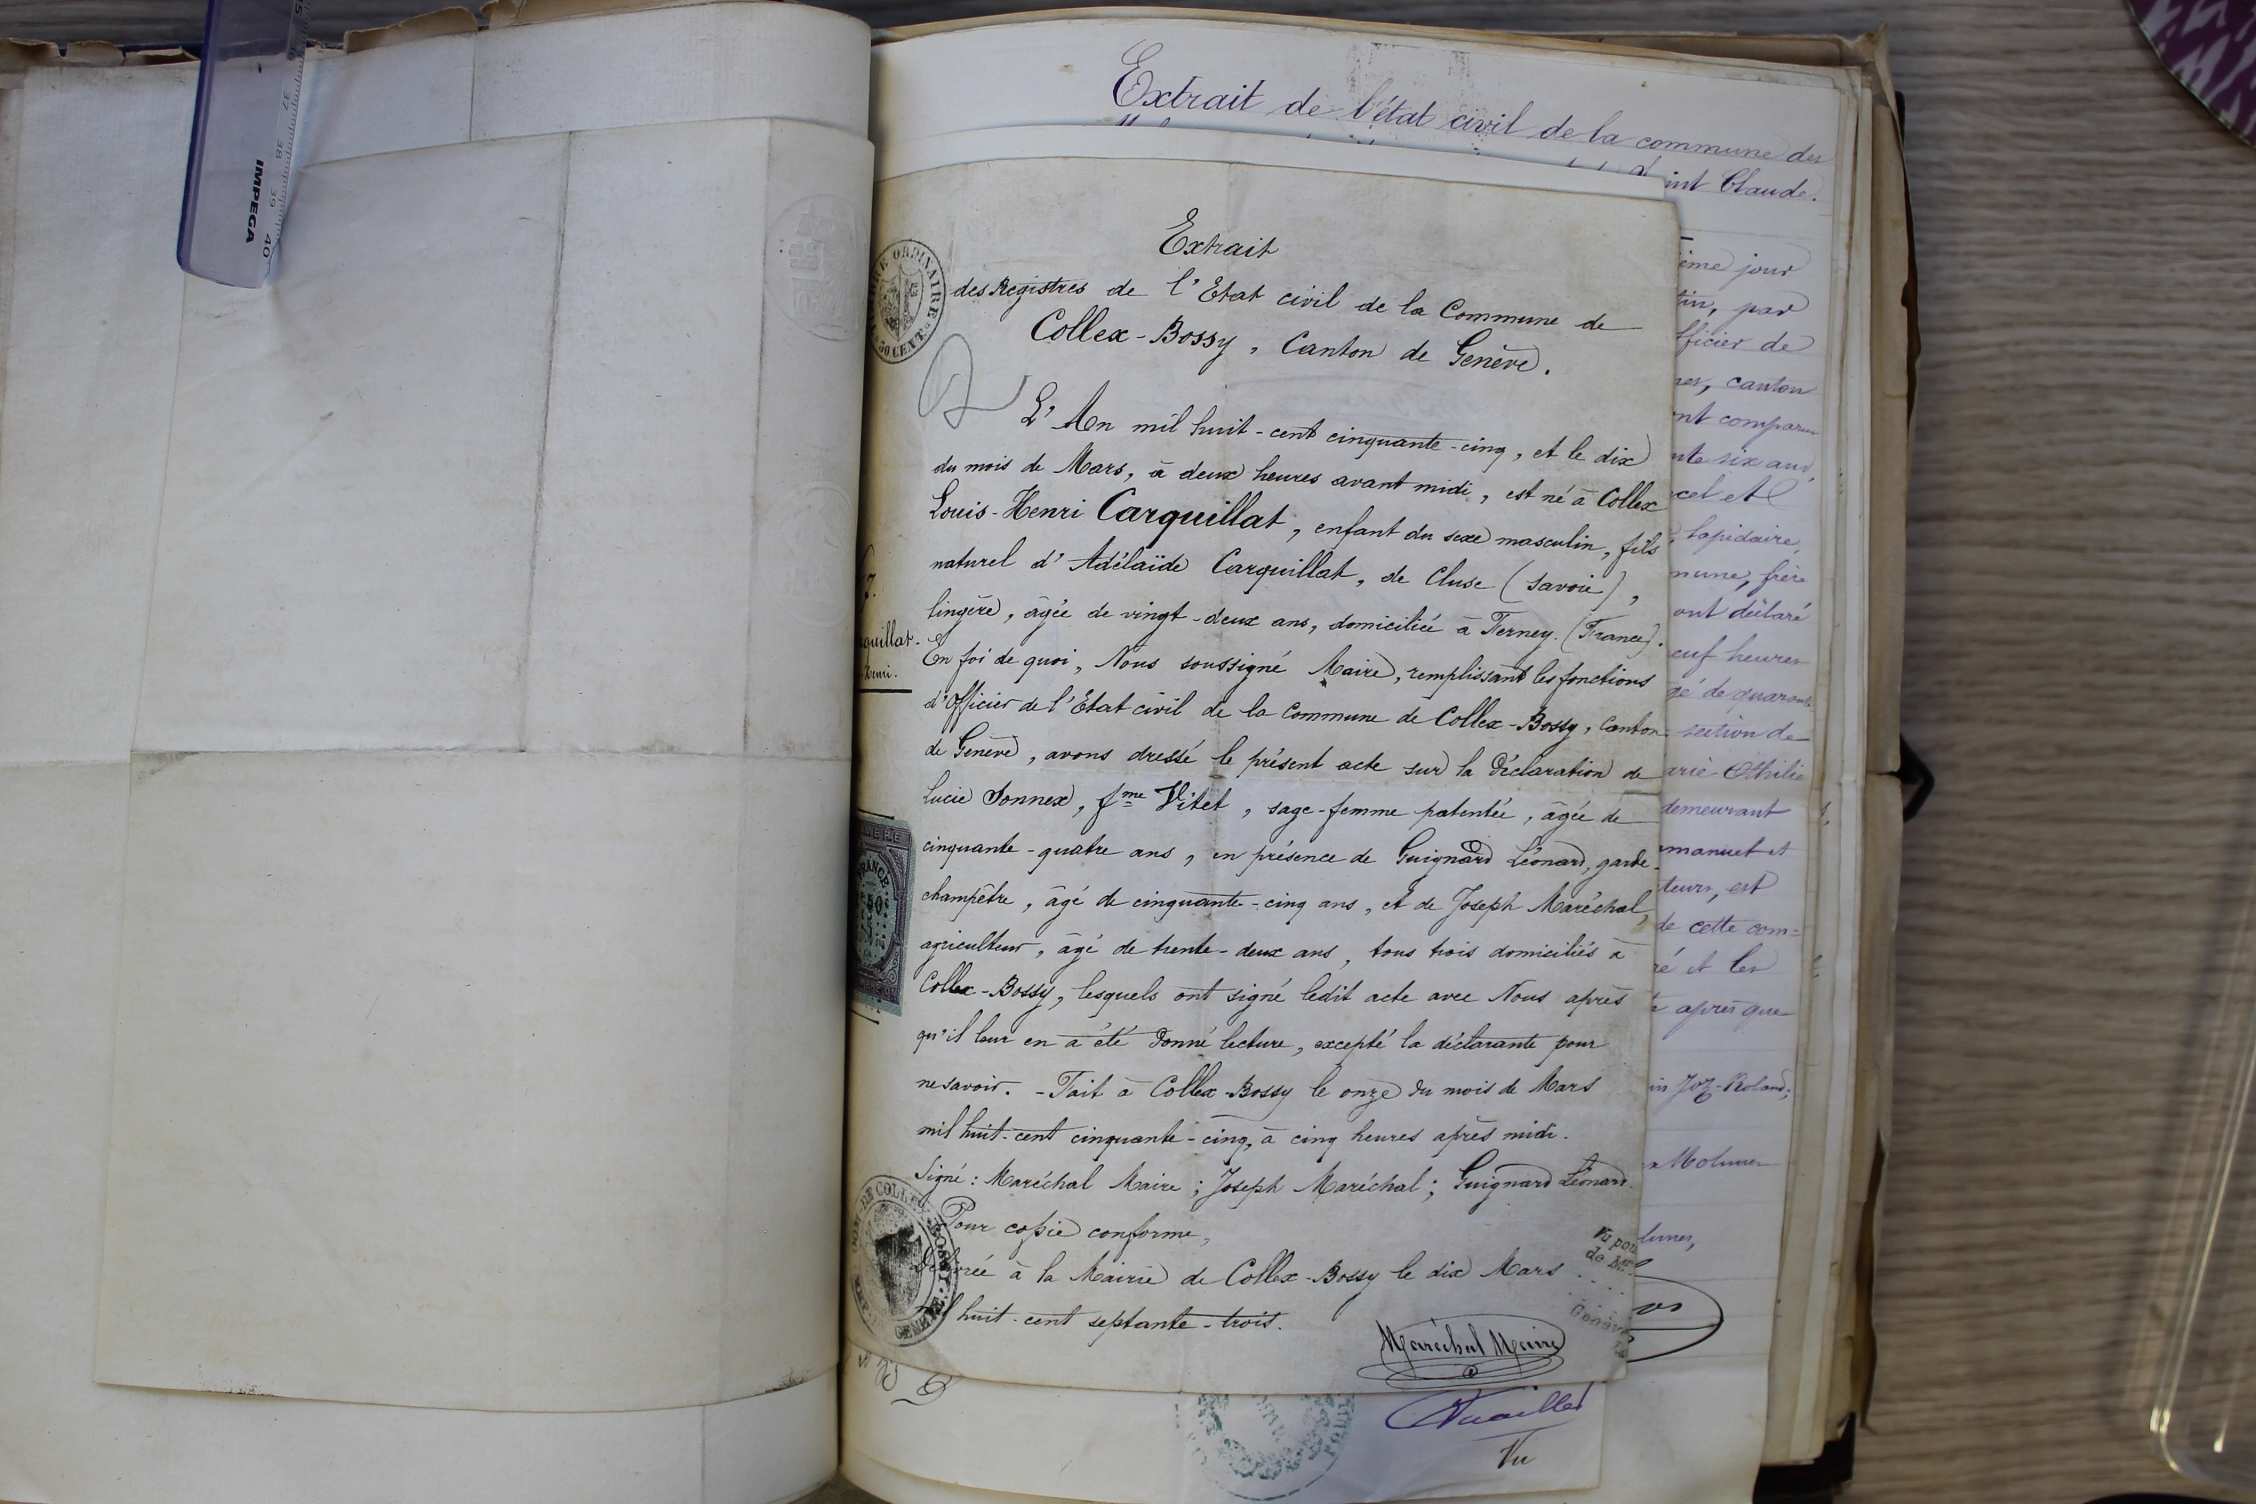 Extrait de l'état civil de la commune des
Saint Claude.
Extrait
des Registres de l'Etat civil de la Commune de
Collex-Bossy, Canton de Genève.
L'An mil huit-cent cinquante-cinq, et le dix
du mois de Mars, à deux heures avant midi, est né à Collex
Louis-Henri Carquillat, enfant du sexe masculin, fils
naturel d'Adélaïde Carquillat, de Cluse (Savoie),
lingère, âgée de vingt-deux ans, domiciliée à Ferney. (France).
En foi de quoi, Nous soussigné Maire, remplissant les fonctions
d'Officier de l'Etat civil de la Commune de Collex-Bossy, Canton
de Genève, avons dressé le présent acte sur la déclaration de
Lucie Jonnex, fme Vitet, sage-femme patentée, âgée de
cinquante-quatre ans, en présence de Guignard Léonard, garde-
champêtre, âgé de cinquante-cinq ans, et de Joseph Maréchal,
agriculteur, âgé de trente-deux ans, tous trois domiciliés à
Collex-Bossy, lesquels ont signé ledit acte avec Nous après
qu'il leur en a été donné lecture, excepté la déclarante pour
ne savoir. - Fait à Collex-Bossy le onze du mois de Mars
mil huit-cent cinquante-cinq, à cinq heures après midi.
Signé: Maréchal Maire; Joseph Maréchal; Guignard Léonard.
Pour copie conforme,
Délivrée à la Mairie de Collex-Bossy le dix Mars
mil huit-cent septante-trois.
Maréchal Maire
Vu
ème jour
tin, par
fficier de
canton
nt comparu
nte six ans,
cel et
lapidaire,
mune, frère
ont déclaré
euf heures
gé de quarante
section de
arie Othilie
demeurant
manuel et
teurs, est
de cette com=
ré et les
après que
Joz-Roland;
Molunes
lunes,
quillat.
Henri.
ORDINAIRE
50 CENT.
FRANCE
50c
COLLEX-BOSSY
GENÈVE
Vu pour
de Mr.
Genève
IMPEGA
37 38 39 40